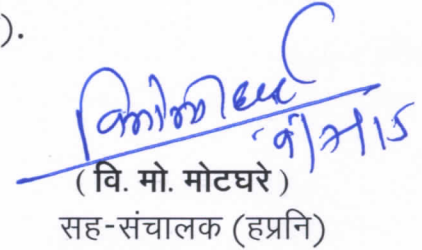 ).
( वि. मो. मोटघरे )
सह-संचालक (हप्रनि)